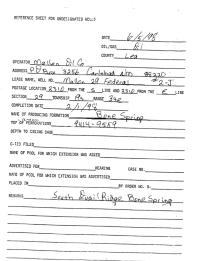 REFERENCE SHEET FOR UNDESIGNATED WELLS
DATE 6/5/98
OIL/GAS Oil
COUNTY Lea
OPERATOR Mallon Oil Co
ADDRESS P O Box 3256 Carlsbad NM 88220
LEASE NAME, WELL NO. Mallon 29 Federal #2-J
FOOTAGE LOCATION 2310 FROM THE S LINE AND 2310 FROM THE E LINE
SECTION 29 TOWNSHIP 19s RANGE 34e
COMPLETION DATE 2/1/98
NAME OF PRODUCING FORMATION Bone Spring
TOP OF PERFORATIONS 9414-9559
DEPTH TO CASING SHOE
C-123 FILED
NAME OF POOL FOR WHICH EXTENSION WAS ASKED
ADVERTISED FOR HEARING CASE NO.
NAME OF POOL FOR WHICH EXTENSION WAS ADVERTISED
PLACED IN BY ORDER NO. R-
REMARKS South Quail Ridge Bone Spring